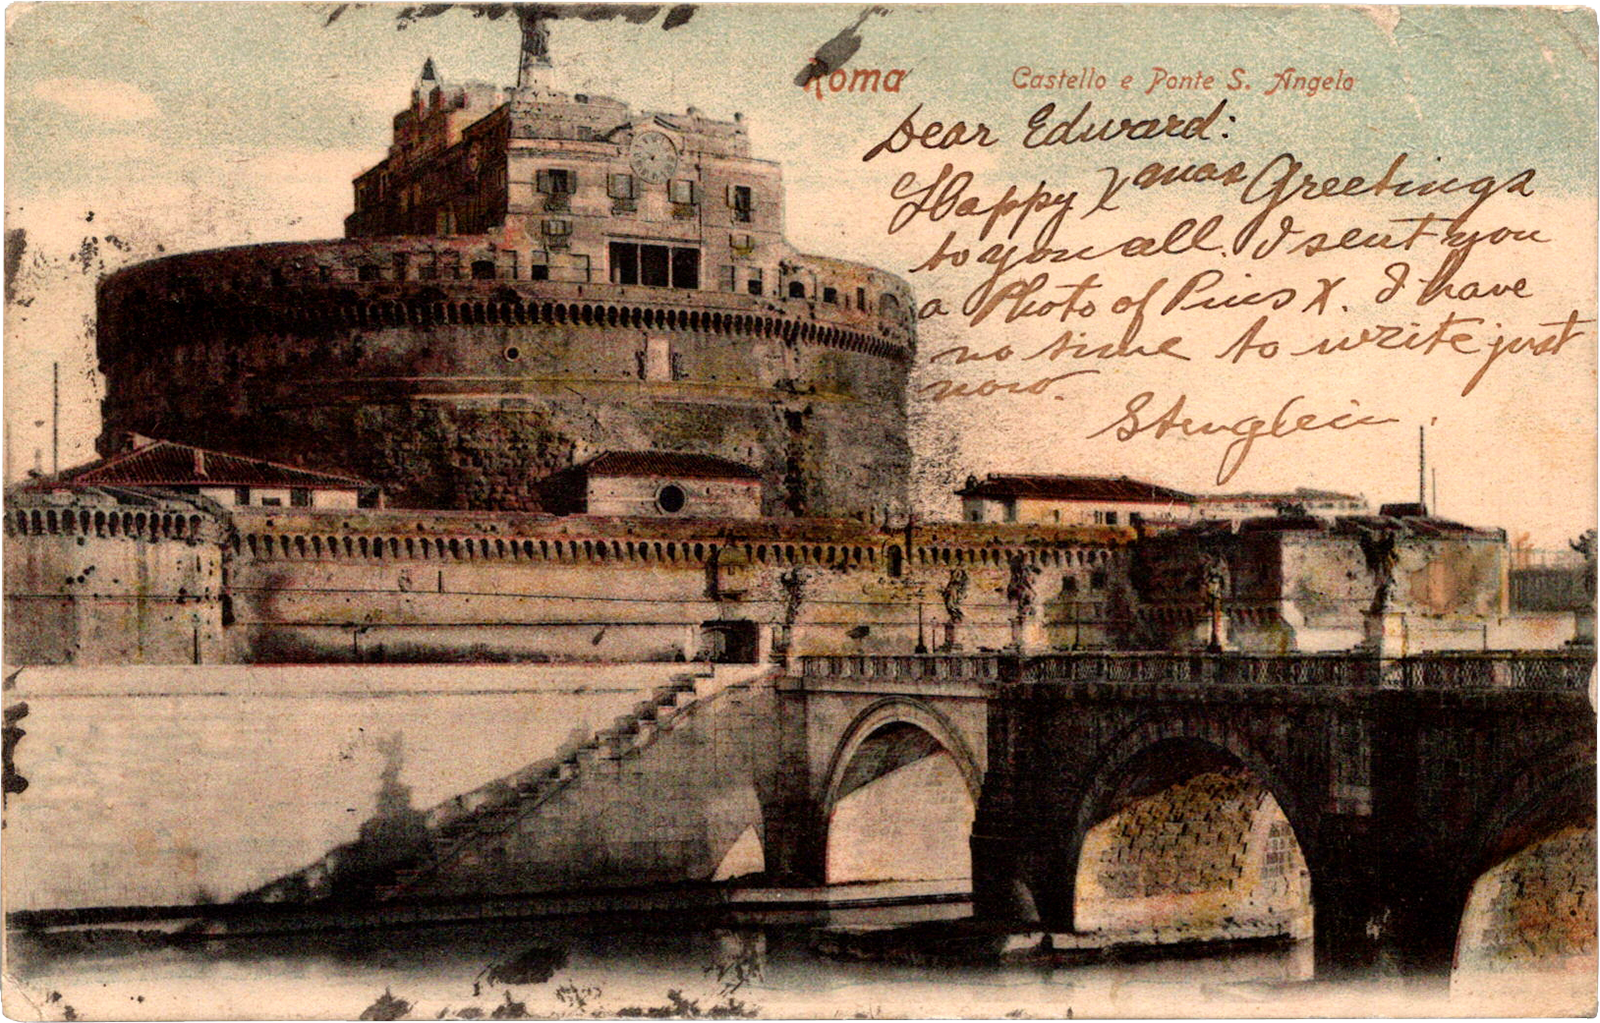 Roma
Castello e Ponte S. Angelo
Dear Edward:
Happy Xmas Greetings
to you all. I sent you
a Photo of Pius X. I have
no time to write just
now.
Stenglein.